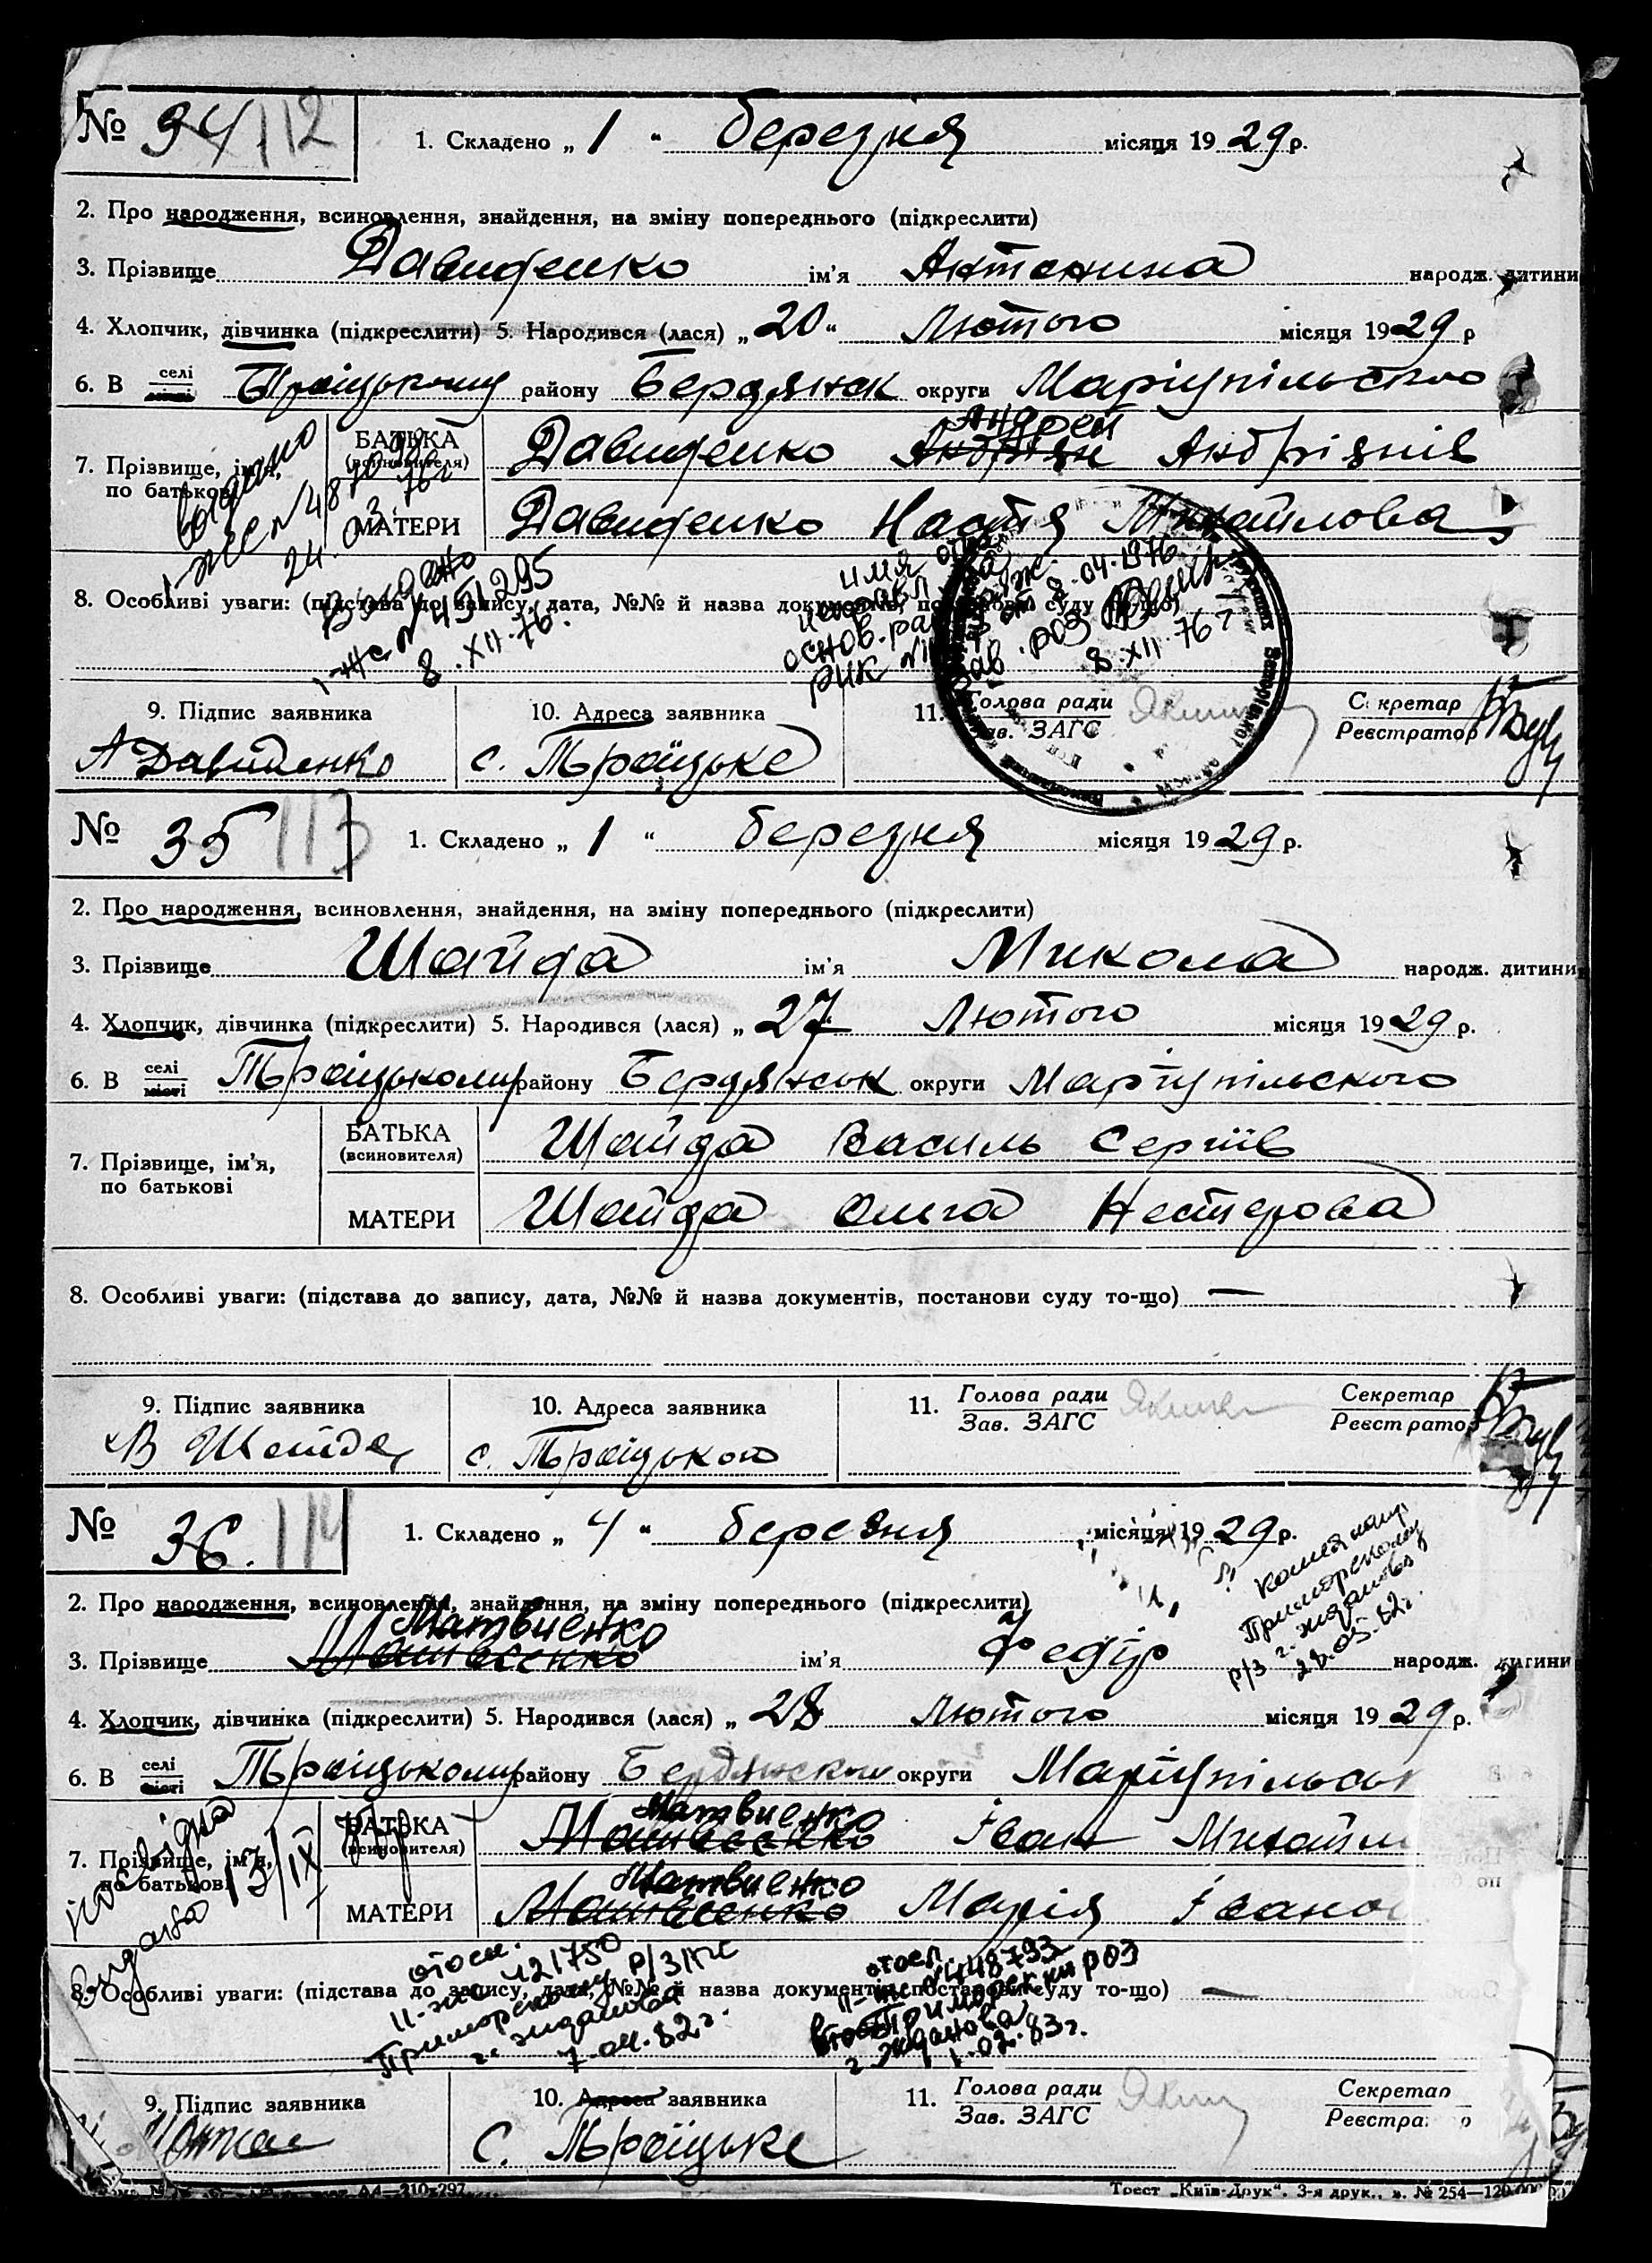 № 34 112
1. Складено „ 1 “ березня місяця 1929 р.
2. Про народження, всиновлення, знайдення, на зміну попереднього (підкреслити)
3. Прізвище Давиденко ім’я Антонина народж. дитини
4. Хлопчик, дівчинка (підкреслити) 5. Народився (лася) „ 20 “ Лютого місяця 1929 р
6. В селі місті Троіцькому району Бердянськ округи Маріупільского
7. Прізвище, ім’я, по батькові
БАТЬКА (всиновителя) Давиденко Андріян Андрей Андріянів
МАТЕРИ Давиденко Настя Михайлова
видано
24.03.76г
8. Особливі уваги: (підстава до запису, дата, №№ й назва документів, постанови суду то-що)
Выдано
І-жс № 451295
8.XII.76.
имя отца
исправл
основ.
8.04.1976
Зав. РОЗ
8.XII.76г
9. Підпис заявника
А Давиденко
10. Адреса заявника
с. Троїцьке
11. Голова ради
Зав. ЗАГС
Секретар
Реєстратор
№ 35 113
1. Складено „ 1 “ березня місяця 1929 р.
2. Про народження, всиновлення, знайдення, на зміну попереднього (підкреслити)
3. Прізвище Шайда ім’я Микола народж. дитини
4. Хлопчик, дівчинка (підкреслити) 5. Народився (лася) „ 27 Лютого місяця 1929 р.
6. В селі місті Троіцькому району Бердянськ округи Маріупільского
7. Прізвище, ім’я, по батькові
БАТЬКА (всиновителя) Шайда Василь Сергіів
МАТЕРИ Шайда Ольга Нестерова
8. Особливі уваги: (підстава до запису, дата, №№ й назва документів, постанови суду то-що) —
9. Підпис заявника
В Шайда
10. Адреса заявника
с. Троіцького
11. Голова ради
Зав. ЗАГС
Секретар
Реєстратор
№ 36. 114
1. Складено „ 4 “ березня місяця 1929 р.
Копия напр.
Приморскому
р/з г. Жданова
28.05.82г.
2. Про народження, всиновлення, знайдення, на зміну попереднього (підкреслити)
Матвиенко
3. Прізвище ім’я Федір народж. дитини
4. Хлопчик, дівчинка (підкреслити) 5. Народився (лася) „ 28 Лютого місяця 1929 р.
6. В селі місті Троіцькому району Бердянськ округи Маріупільськ
7. Прізвище, ім’я, по батькові
Матвиенко
БАТЬКА (всиновителя) Іван Михайл
Матвиенко
МАТЕРИ Марія Іванов
видано 13/IX
8. Особливі уваги: (підстава до запису, дата, №№ й назва документів, постанови суду то-що) —
отосл.
ІІ-жс 421750
Приморскому р/з
г. Жданова
7.04.82г.
отосл
ІІ-жс № 448793
Приморский РОЗ
г. Жданова
1.02.83г.
9. Підпис заявника
10. Адреса заявника
с. Троїцьке
11. Голова ради
Зав. ЗАГС
Секретар
Реєстра
А4—210×297
Трест „Київ-Друк“. 3-я друк., № 254—120.000